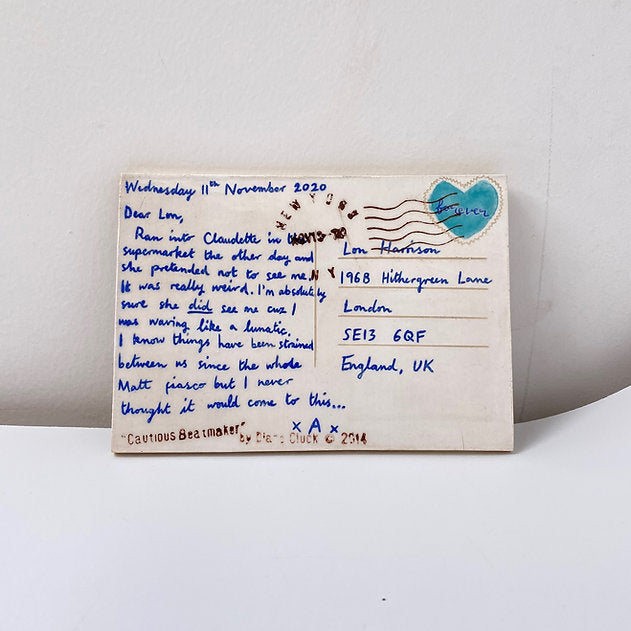 Wednesday 11th November 2020
Dear Lon,
Ran into Claudette in the
supermarket the other day and
she pretended not to see me.
It was really weird. I'm absolutely
sure she did see me cuz I
was waving like a lunatic.
I know things have been strained
between us since the whole
Matt fiasco but I never
thought it would come to this...
x A x
"Cautious Beatmaker" by Diane Cluck © 2014
NEW YORK
NOV
N Y
forever
Lon Harrison
196B Hithergreen Lane
London
SE13 6QF
England, UK